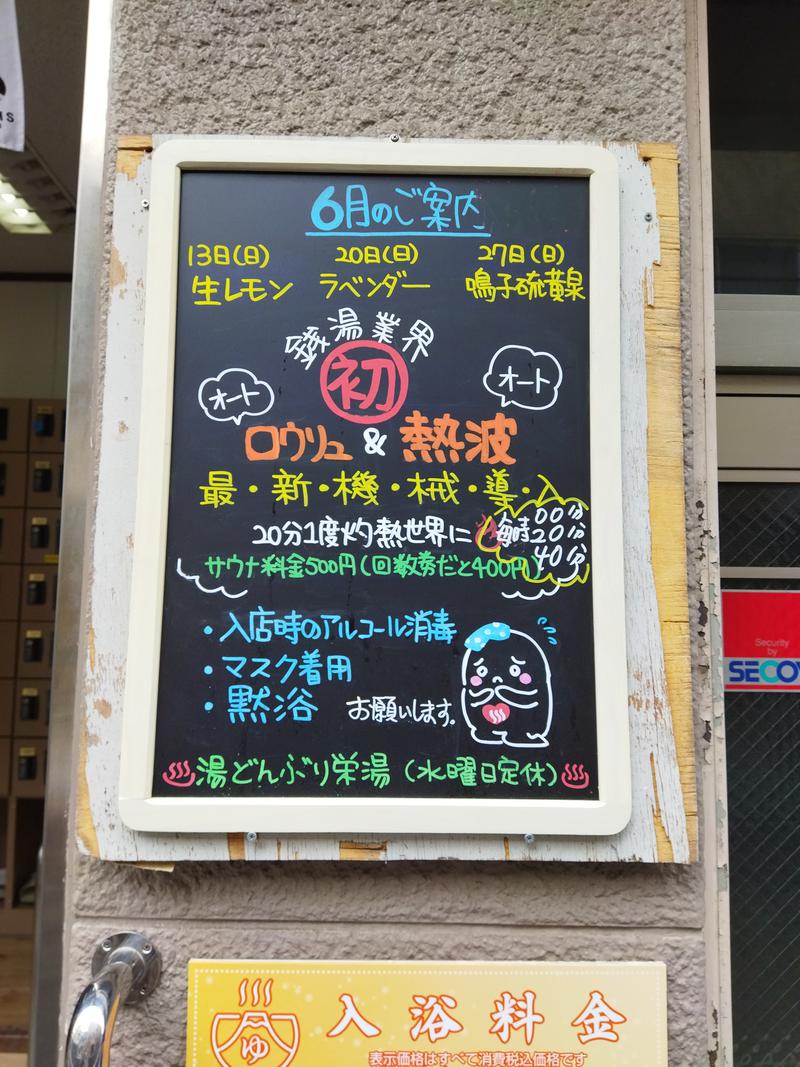 6月のご案内
13日(日) 20日(日) 27日(日)
生レモン ラベンダー 鳴子硫黄泉
銭湯業界
初
オート オート
ロウリュ & 熱波
最・新・機・械・導・入
20分1度灼熱世界に 毎時 00分 20分 40分
サウナ料金500円(回数券だと400円)
・入店時のアルコール消毒
・マスク着用
・黙浴 お願いします。
湯どんぶり栄湯(水曜日定休)
Security
by
SECO
ゆ
入浴料金
表示価格はすべて消費税込価格です